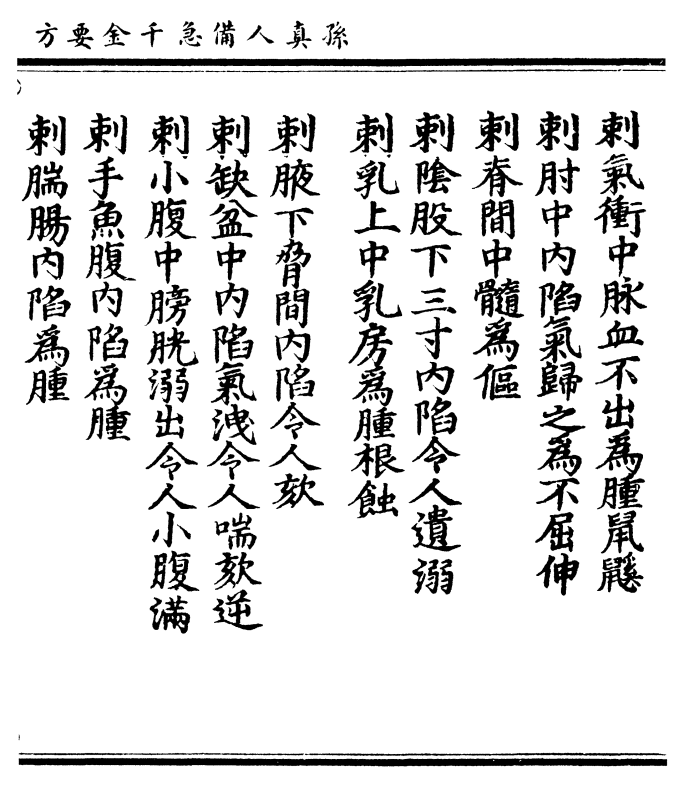 孫真人備急千金要方
刺氣衝中脉血不出爲腫鼠鼷
刺肘中内陷氣歸之爲不屈伸
刺脊間中髓爲傴
刺陰股下三寸内陷令人遺溺
刺乳上中乳房爲腫根蝕
刺腋下脅間内陷令人欬
刺缺盆中内陷氣洩令人喘欬逆
刺小腹中膀胱溺出令人小腹滿
刺手魚腹内陷爲腫
刺腨腸内陷爲腫